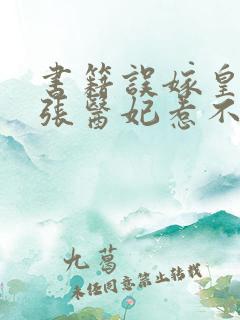 書籍誤嫁皇
張醫妃惹不
九葛
未經同意禁止轉載